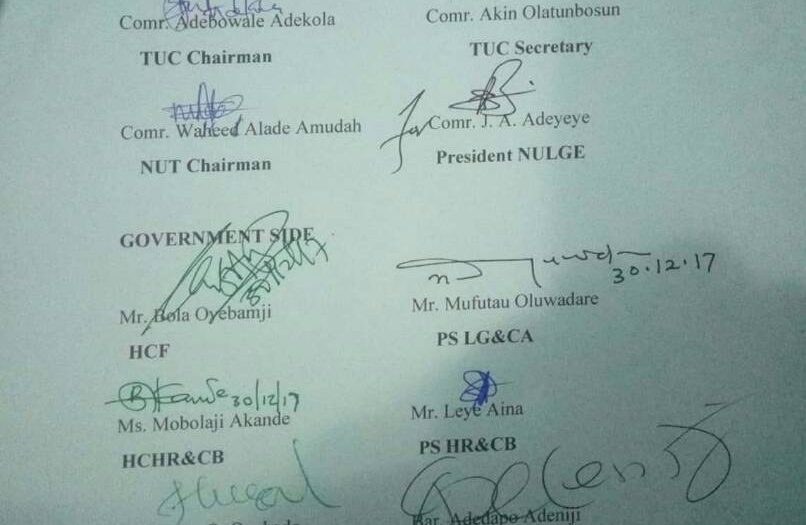 Comr. Adebowale Adekola
Comr. Akin Olatunbosun
TUC Chairman
TUC Secretary
Comr. Waheed Alade Amudah
for Comr. J. A. Adeyeye
NUT Chairman
President NULGE
GOVERNMENT SIDE
30/12/17
30.12.17
Mr. Bola Oyebamji
Mr. Mufutau Oluwadare
HCF
PS LG&CA
30/12/17
Ms. Mobolaji Akande
Mr. Leye Aina
HCHR&CB
PS HR&CB
Bar. Adedapo Adeniji